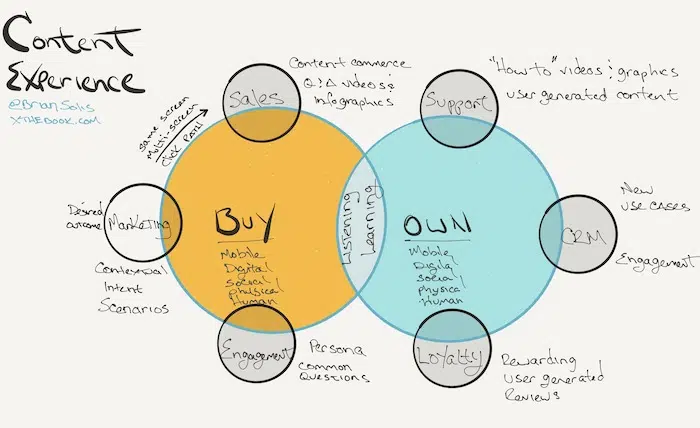 Content
Experience
@BrianSolis
XTHEBOOK.COM
Same screen
Multi-screen
Click Path
Sales
Content commerce
Q & A videos &
infographics
Support
"How to" videos & graphics
user generated content
Desired
outcome
Marketing
Contextual
Intent
Scenarios
BUY
Mobile
Digital
Social
Physical
Human
Listening
Learning
OWN
Mobile
Digital
Social
Physical
Human
CRM
New
use cases
Engagement
Engagement
Persona
Common
Questions
Loyalty
Rewarding
User generated
Reviews